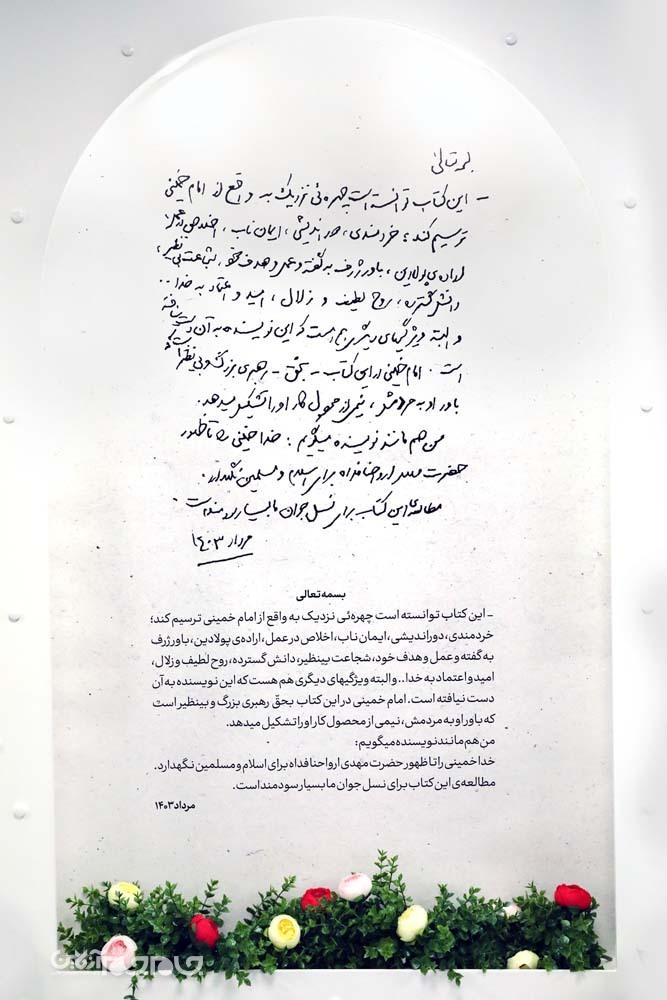 بسمه‌تعالی
- این کتاب توانسته است چهره‌ئی نزدیک به واقع از امام خمینی
ترسیم کند؛ خردمندی، دوراندیشی، ایمان ناب، اخلاص در عمل،
اراده‌ی پولادین، باور ژرف به گفته و عمل و هدف خود، شجاعت بی‌نظیر،
دانش گسترده، روح لطیف و زلال، امید و اعتماد به خدا..
و البته ویژگیهای دیگری هم هست که این نویسنده به آن دست نیافته
است. امام خمینی در این کتاب - بحق - رهبری بزرگ و بی‌نظیر است که
باور او به مردمش، نیمی از محصول کار او را تشکیل میدهد.
من هم مانند نویسنده میگویم: خدا خمینی را تا ظهور
حضرت مهدی ارواحنافداه برای اسلام و مسلمین نگهدارد.
مطالعه‌ی این کتاب برای نسل جوان ما بسیار سودمند است.
مرداد ۱۴۰۳
بسمه تعالی
- این کتاب توانسته است چهره‌ئی نزدیک به واقع از امام خمینی ترسیم کند؛
خردمندی، دوراندیشی، ایمان ناب، اخلاص در عمل، اراده‌ی پولادین، باور ژرف
به گفته و عمل و هدف خود، شجاعت بینظیر، دانش گسترده، روح لطیف و زلال،
امید و اعتماد به خدا.. و البته ویژگیهای دیگری هم هست که این نویسنده به آن
دست نیافته است. امام خمینی در این کتاب بحقّ رهبری بزرگ و بینظیر است
که باور او به مردمش، نیمی از محصول کار او را تشکیل میدهد.
من هم مانند نویسنده میگویم:
خدا خمینی را تا ظهور حضرت مهدی ارواحنا فداه برای اسلام و مسلمین نگهدارد.
مطالعه‌ی این کتاب برای نسل جوان ما بسیار سودمند است.
مرداد ۱۴۰۳